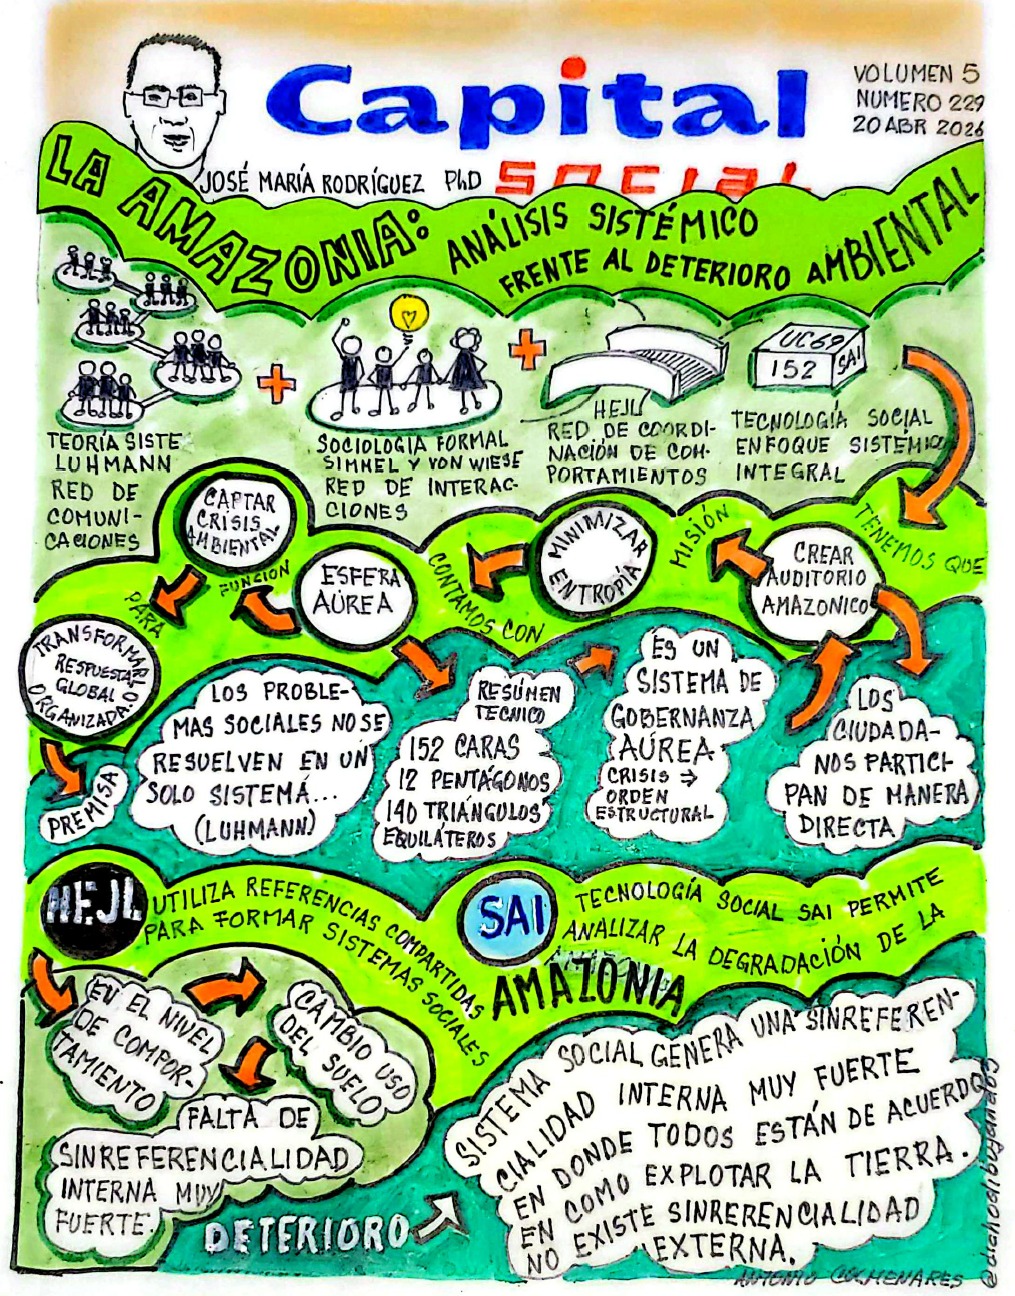 Capital
social
VOLUMEN 5
NUMERO 229
20 ABR 2026
JOSÉ MARÍA RODRÍGUEZ PhD
LA AMAZONIA:
ANÁLISIS SISTÉMICO
FRENTE AL DETERIORO AMBIENTAL
TEORÍA SISTE
LUHMANN
RED DE
COMUNI-
CACIONES
+
SOCIOLOGIA FORMAL
SIMMEL Y VON WIESE
RED DE INTERAC-
CIONES
+
HEJL
RED DE COORDI-
NACIÓN DE COM-
PORTAMIENTOS
UC69
152
SAI
TECNOLOGÍA SOCIAL
ENFOQUE SISTÉMICO
INTEGRAL
TENEMOS QUE
CREAR
AUDITORIO
AMAZONICO
MISIÓN
MINIMIZAR
ENTROPÍA
CONTAMOS CON
ESFERA
AÚREA
FUNCION
CAPTAR
CRISIS
AMBIENTAL
PARA
TRANSFORMAR
RESPUESTA
GLOBAL
ORGANIZADA
PREMISA
LOS PROBLE-
MAS SOCIALES NO SE
RESUELVEN EN UN
SOLO SISTEMÁ...
(LUHMANN)
RESÚMEN
TECNICO
152 CARAS
12 PENTÁGONOS
140 TRIÁNGULOS
EQUILÁTEROS
ES UN
SISTEMA DE
GOBERNANZA
AÚREA
CRISIS →
ORDEN
ESTRUCTURAL
LOS
CIUDADA-
NOS PARTICI-
PAN DE MANERA
DIRECTA
HEJL
UTILIZA REFERENCIAS COMPARTIDAS
PARA FORMAR SISTEMAS SOCIALES
SAI
TECNOLOGÍA SOCIAL SAI PERMITE
ANALIZAR LA DEGRADACIÓN DE LA
AMAZONIA
EN EL NIVEL
DE COMPOR-
TAMIENTO
CAMBIO USO
DEL SUELO
FALTA DE
SINREFERENCIALIDAD
INTERNA MUY
FUERTE.
DETERIORO
SISTEMA SOCIAL GENERA UNA SINREFEREN-
CIALIDAD INTERNA MUY FUERTE
EN DONDE TODOS ESTÁN DE ACUERDO
EN COMO EXPLOTAR LA TIERRA.
NO EXISTE SINRERENCIALIDAD
EXTERNA.
ANTONIO COLMENARES